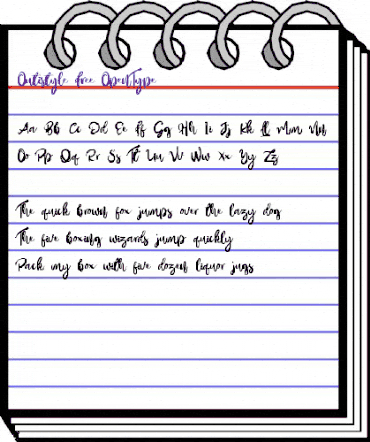 Outistyle free OpenType
Aa Bb Cc Dd Ee Ff Gg Hh Ii Jj Kk Ll Mm Nn
Oo Pp Qq Rr Ss Tt Uu Vv Ww Xx Yy Zz
The quick brown fox jumps over the lazy dog
The five boxing wizards jump quickly
Pack my box with five dozen liquor jugs